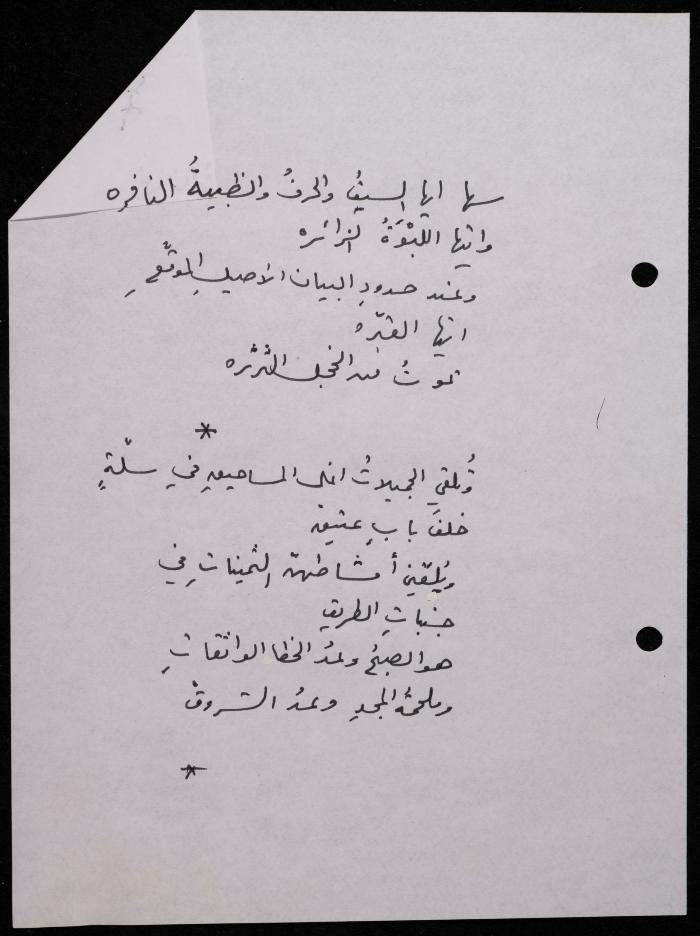 سها ايها السيفُ والحرفُ والظبيةُ النافره
وايتها اللبْوَةُ الزائره
وعند حدودِ البيان الأصيلِ الموقَّعِ
ايتها القبّره
تموتُ من الخجل الثرثره
*
وتُلقي الجميلاتُ اغلى المساحيقِ في سلّةٍ
خلفَ بابٍ عتيق
ويُلقينَ أمشاطهنّ الثمينات في
جنباتِ الطريق
هو الصبحُ وعدُ الخطا الواثقاتِ
وملحمةُ المجدِ وعدُ الشروق
*